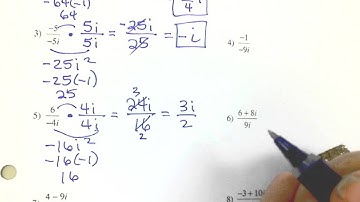 -64(-1)
64
4 i
3) -5/-5i • 5i/5i = -25i/25 = -i
-25i²
-25(-1)
25
4) -1/-9i
5) 6/-4i • 4i/4i = 24i/16 = 3i/2
3
2
-16i²
-16(-1)
16
6) 6 + 8i/9i
4 - 9i
8) -3 + 10